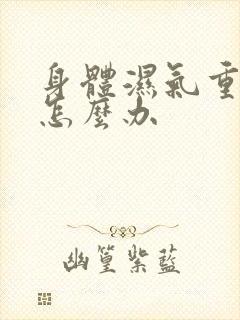 身體濕氣重
怎麼办
幽篁紫藍